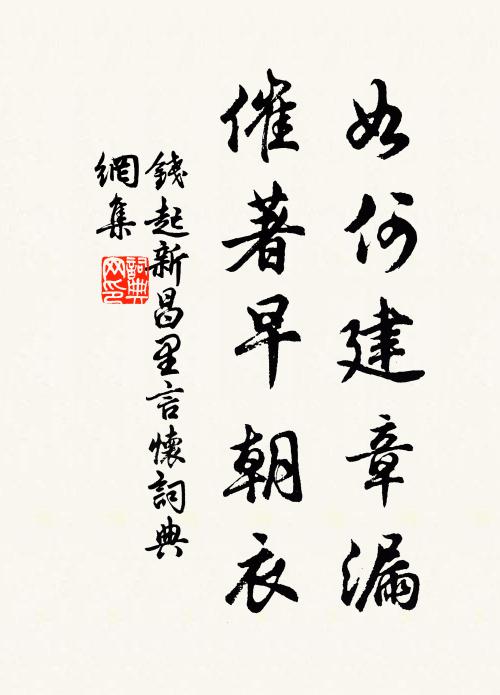 如何建章漏
催著早朝衣
錢起新昌里言懷詞典
網集
詞典網印